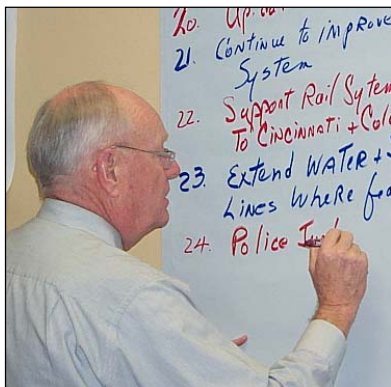 20. Up
21. Continue to improve
System
22. Support Rail Sytem
To Cincinnati +
23. Extend WATER +
Lines Where
24. Police